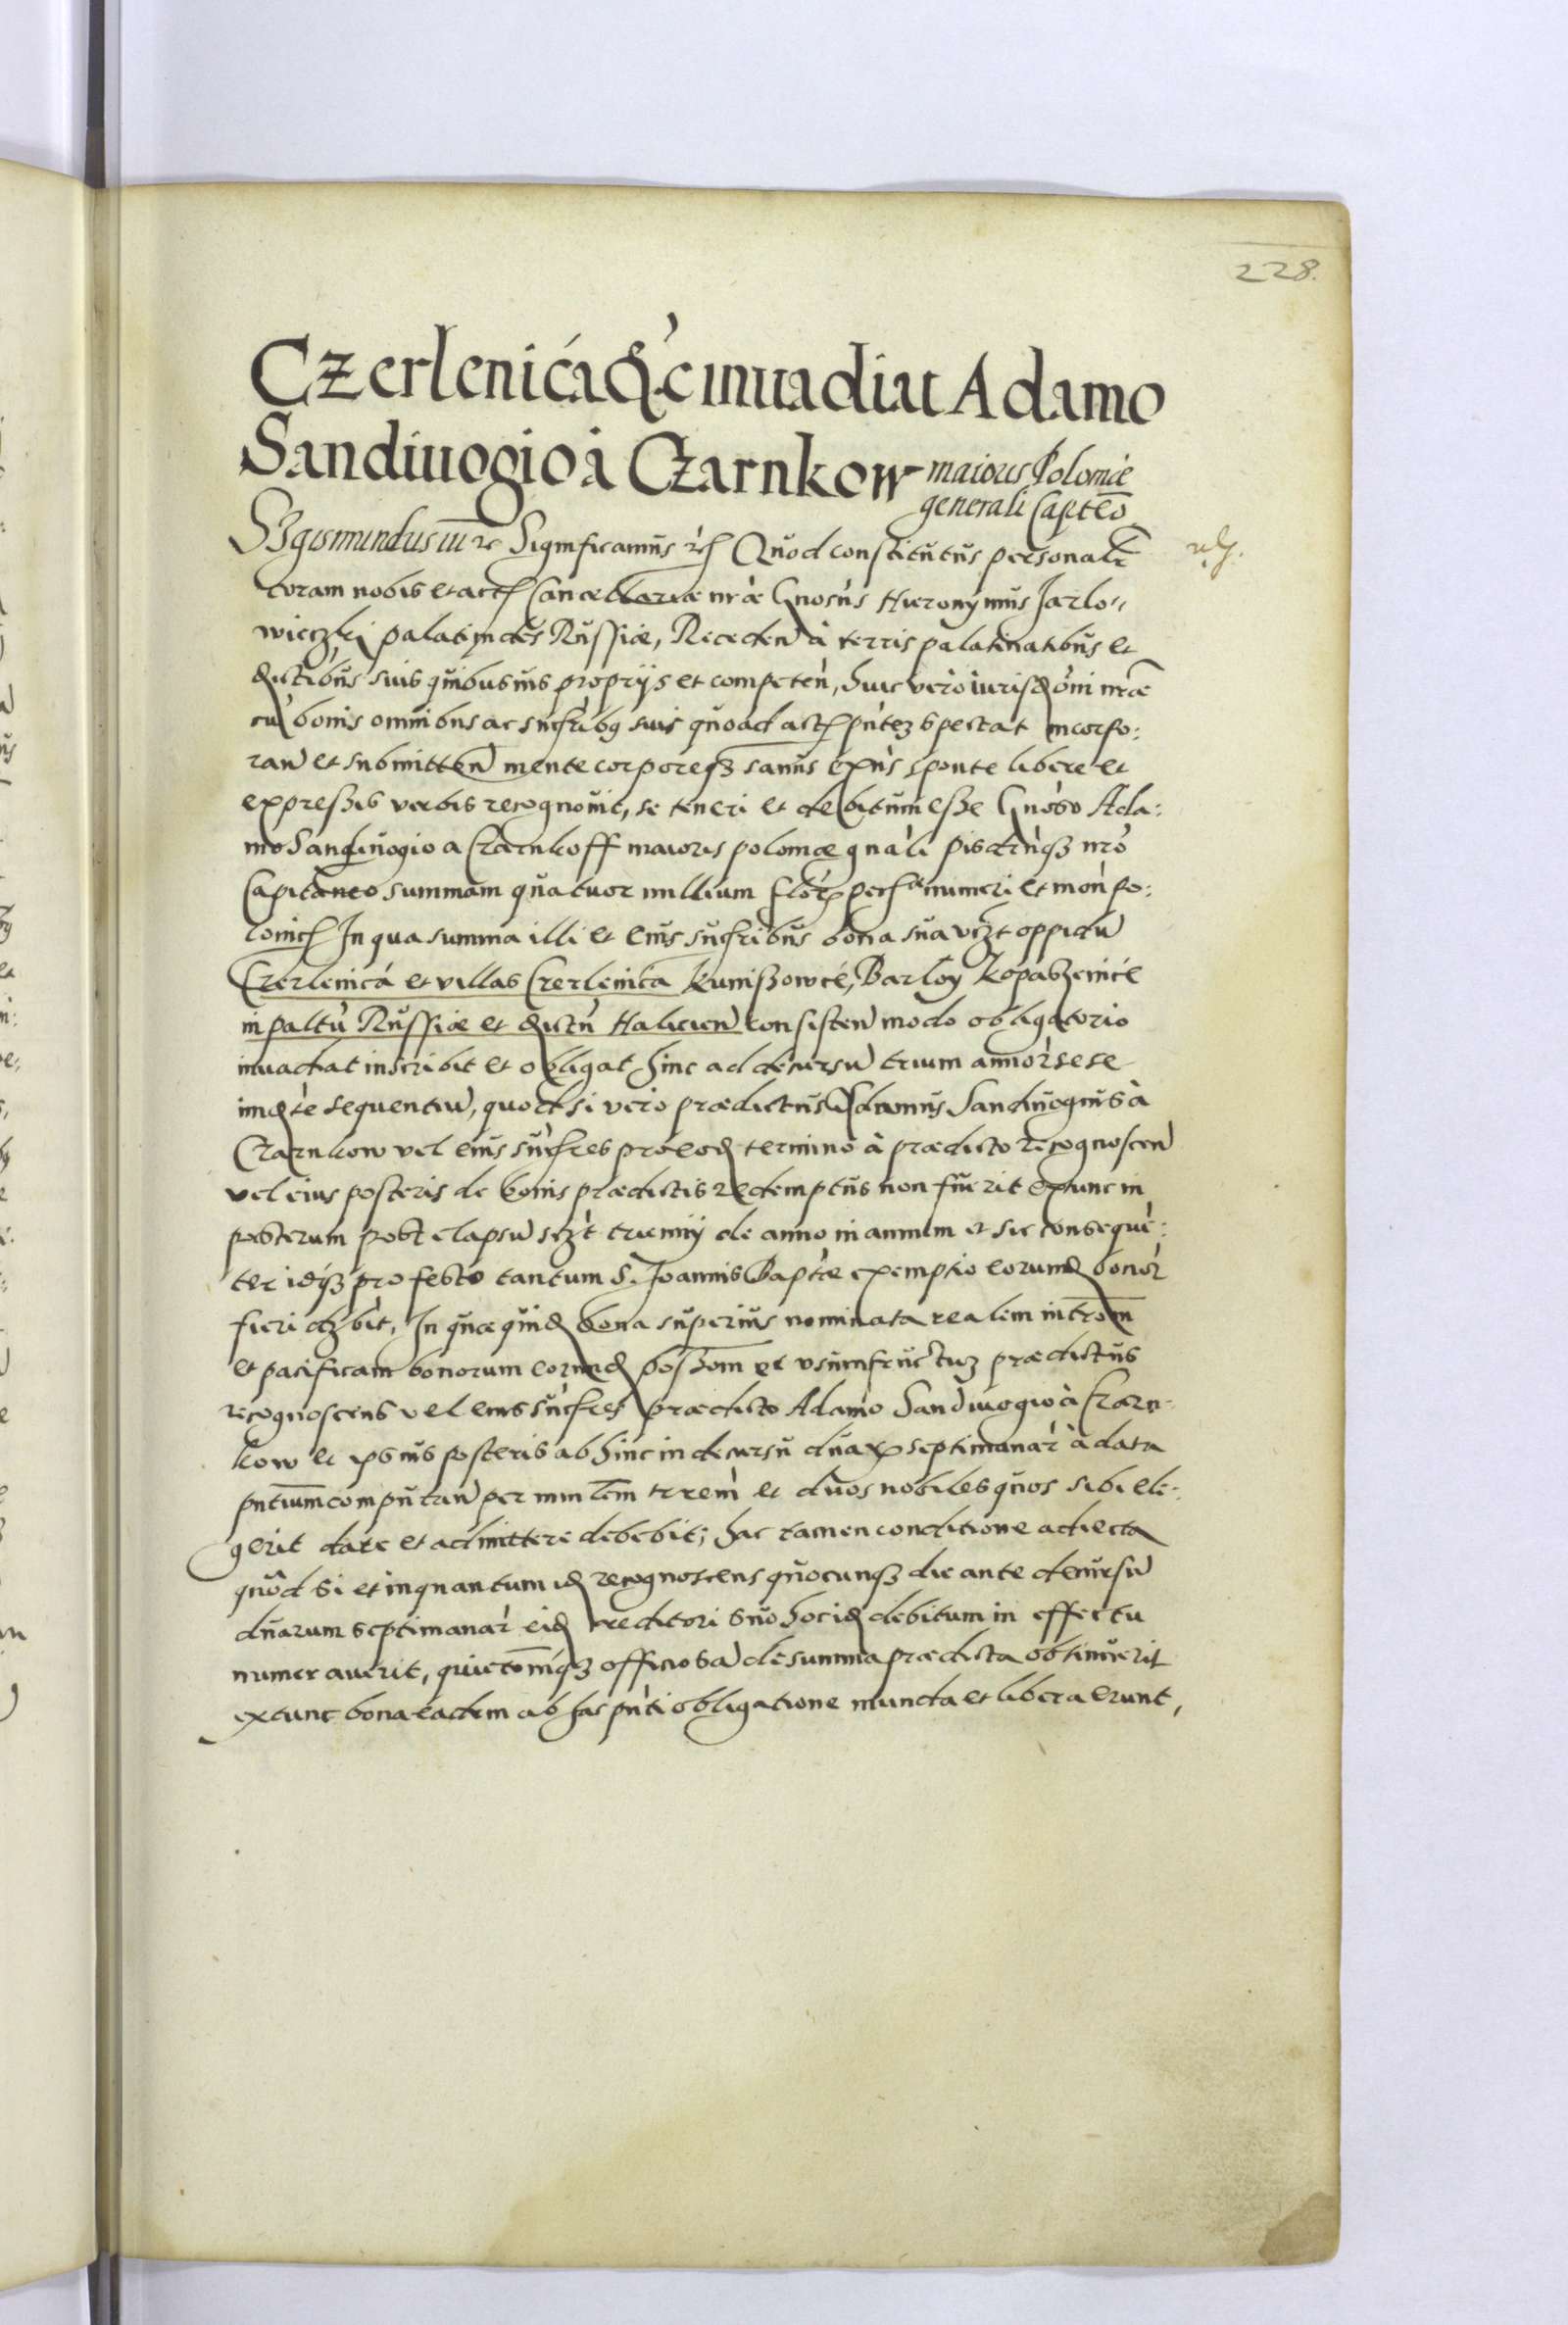 228.
Czerlenica &c inuadiat Adamo
Sandiuogio à Czarnkow maioris Poloniæ
generali Capteo
Sigismundus III &c Significamus &c Quod constitutus personalr
coram nobis et actis Cancellariæ nræ Gnosus Hieronymus Jarlo„
wieczki palatindes Russiæ, Receden à terris palatinatibus et
dictibus suis quibusuis proprijs et competen, huic vero iurisdoni nræ
cu bonis omnibus ac succribus suis quoad actu pntez spectat incorpo:
ran et submitten mente corporeqz sanus exns sponte libere et
expressis verbis recognouit, se teneri et debitum esse Gnoso Ada:
mo Sandiuogio a Czarnkoff maioris poloniæ gnali Pisdrinqz nro
Capitaneo summam quatuor millium flor pecuæ numeri et mon po:
lonic In qua summa illi et eius succribus bona sua vczt oppidu
Czerlenica et villas Czerlenica Kunissowce, Barloy Kopaszenice
in paltu Russiæ et dictu Halicien consisten modo obligatorio
inuadiat inscribit et obligat hinc ad decursu trium annor sese
imdte sequentiu, quod si vero prædictus Adamus Sandiuogius à
Czarnkow vel eius succres pro eod termino à prædicto recognoscen
vel eius posteris de bonis prædictis redemptus non fuerit extunc in
posterum post elapsu sczt triennij de anno in annum et sic conseque:
ter idqz pro festo tantum S. Joannis Baptæ exemptio eorund bonor
fieri dzbit, In quæ quid bona superius nominata realem introm
et pacificam bonorum eorund possom et vsumfructuz prædictus
recognoscens vel eius succres prædicto Adamo Sandiuogio à Czarn-
kow et ipsius posteris ab hinc in decursu duar septimanar à data
pntium computan per minlem trrem et duos nobiles quos sibi ele:
gerit dare et admittere debebit; hac tamen conditione adiecta
quod si et inquantum id recognoscens quocunqz die ante decursu
duarum septimanar eid creditori suo hoc id debitum in effectu
numerauerit, quietomqz officiosa de summa prædicta obtinuerit
extunc bona eadem ab hac pnti obligatione munda et libera erunt,